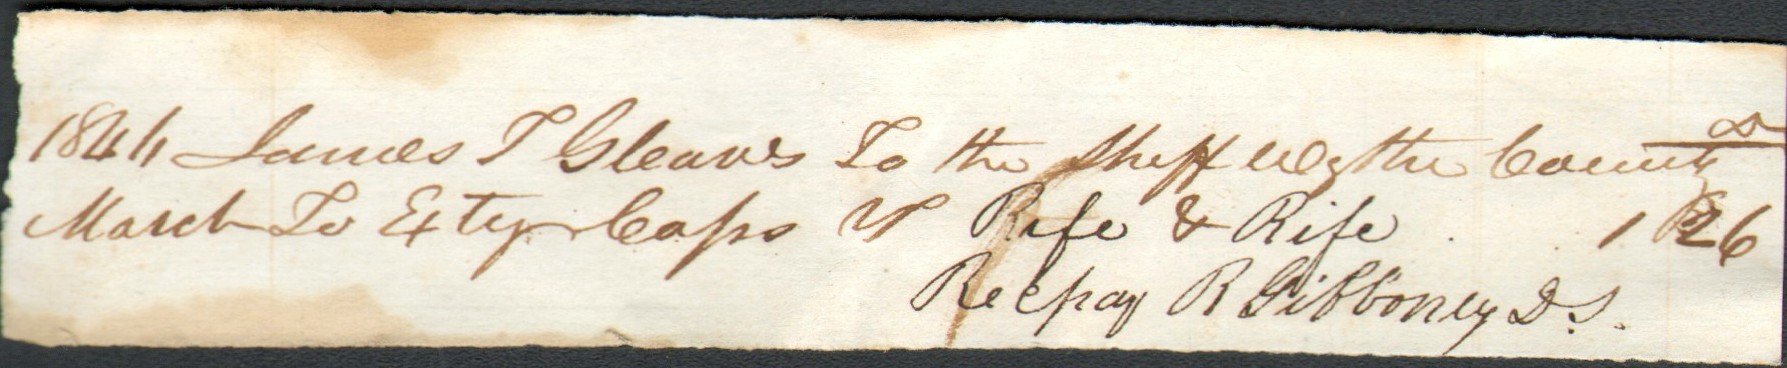 1844 James T Gleaves To the Sheff Wythe County Dr
March To Exty Caps vs Rife & Rife 1 26
Rec pay R Gibboney D.S.